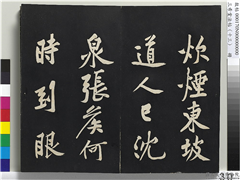 炊煙東坡
道人已沈
泉張侯何
時到眼